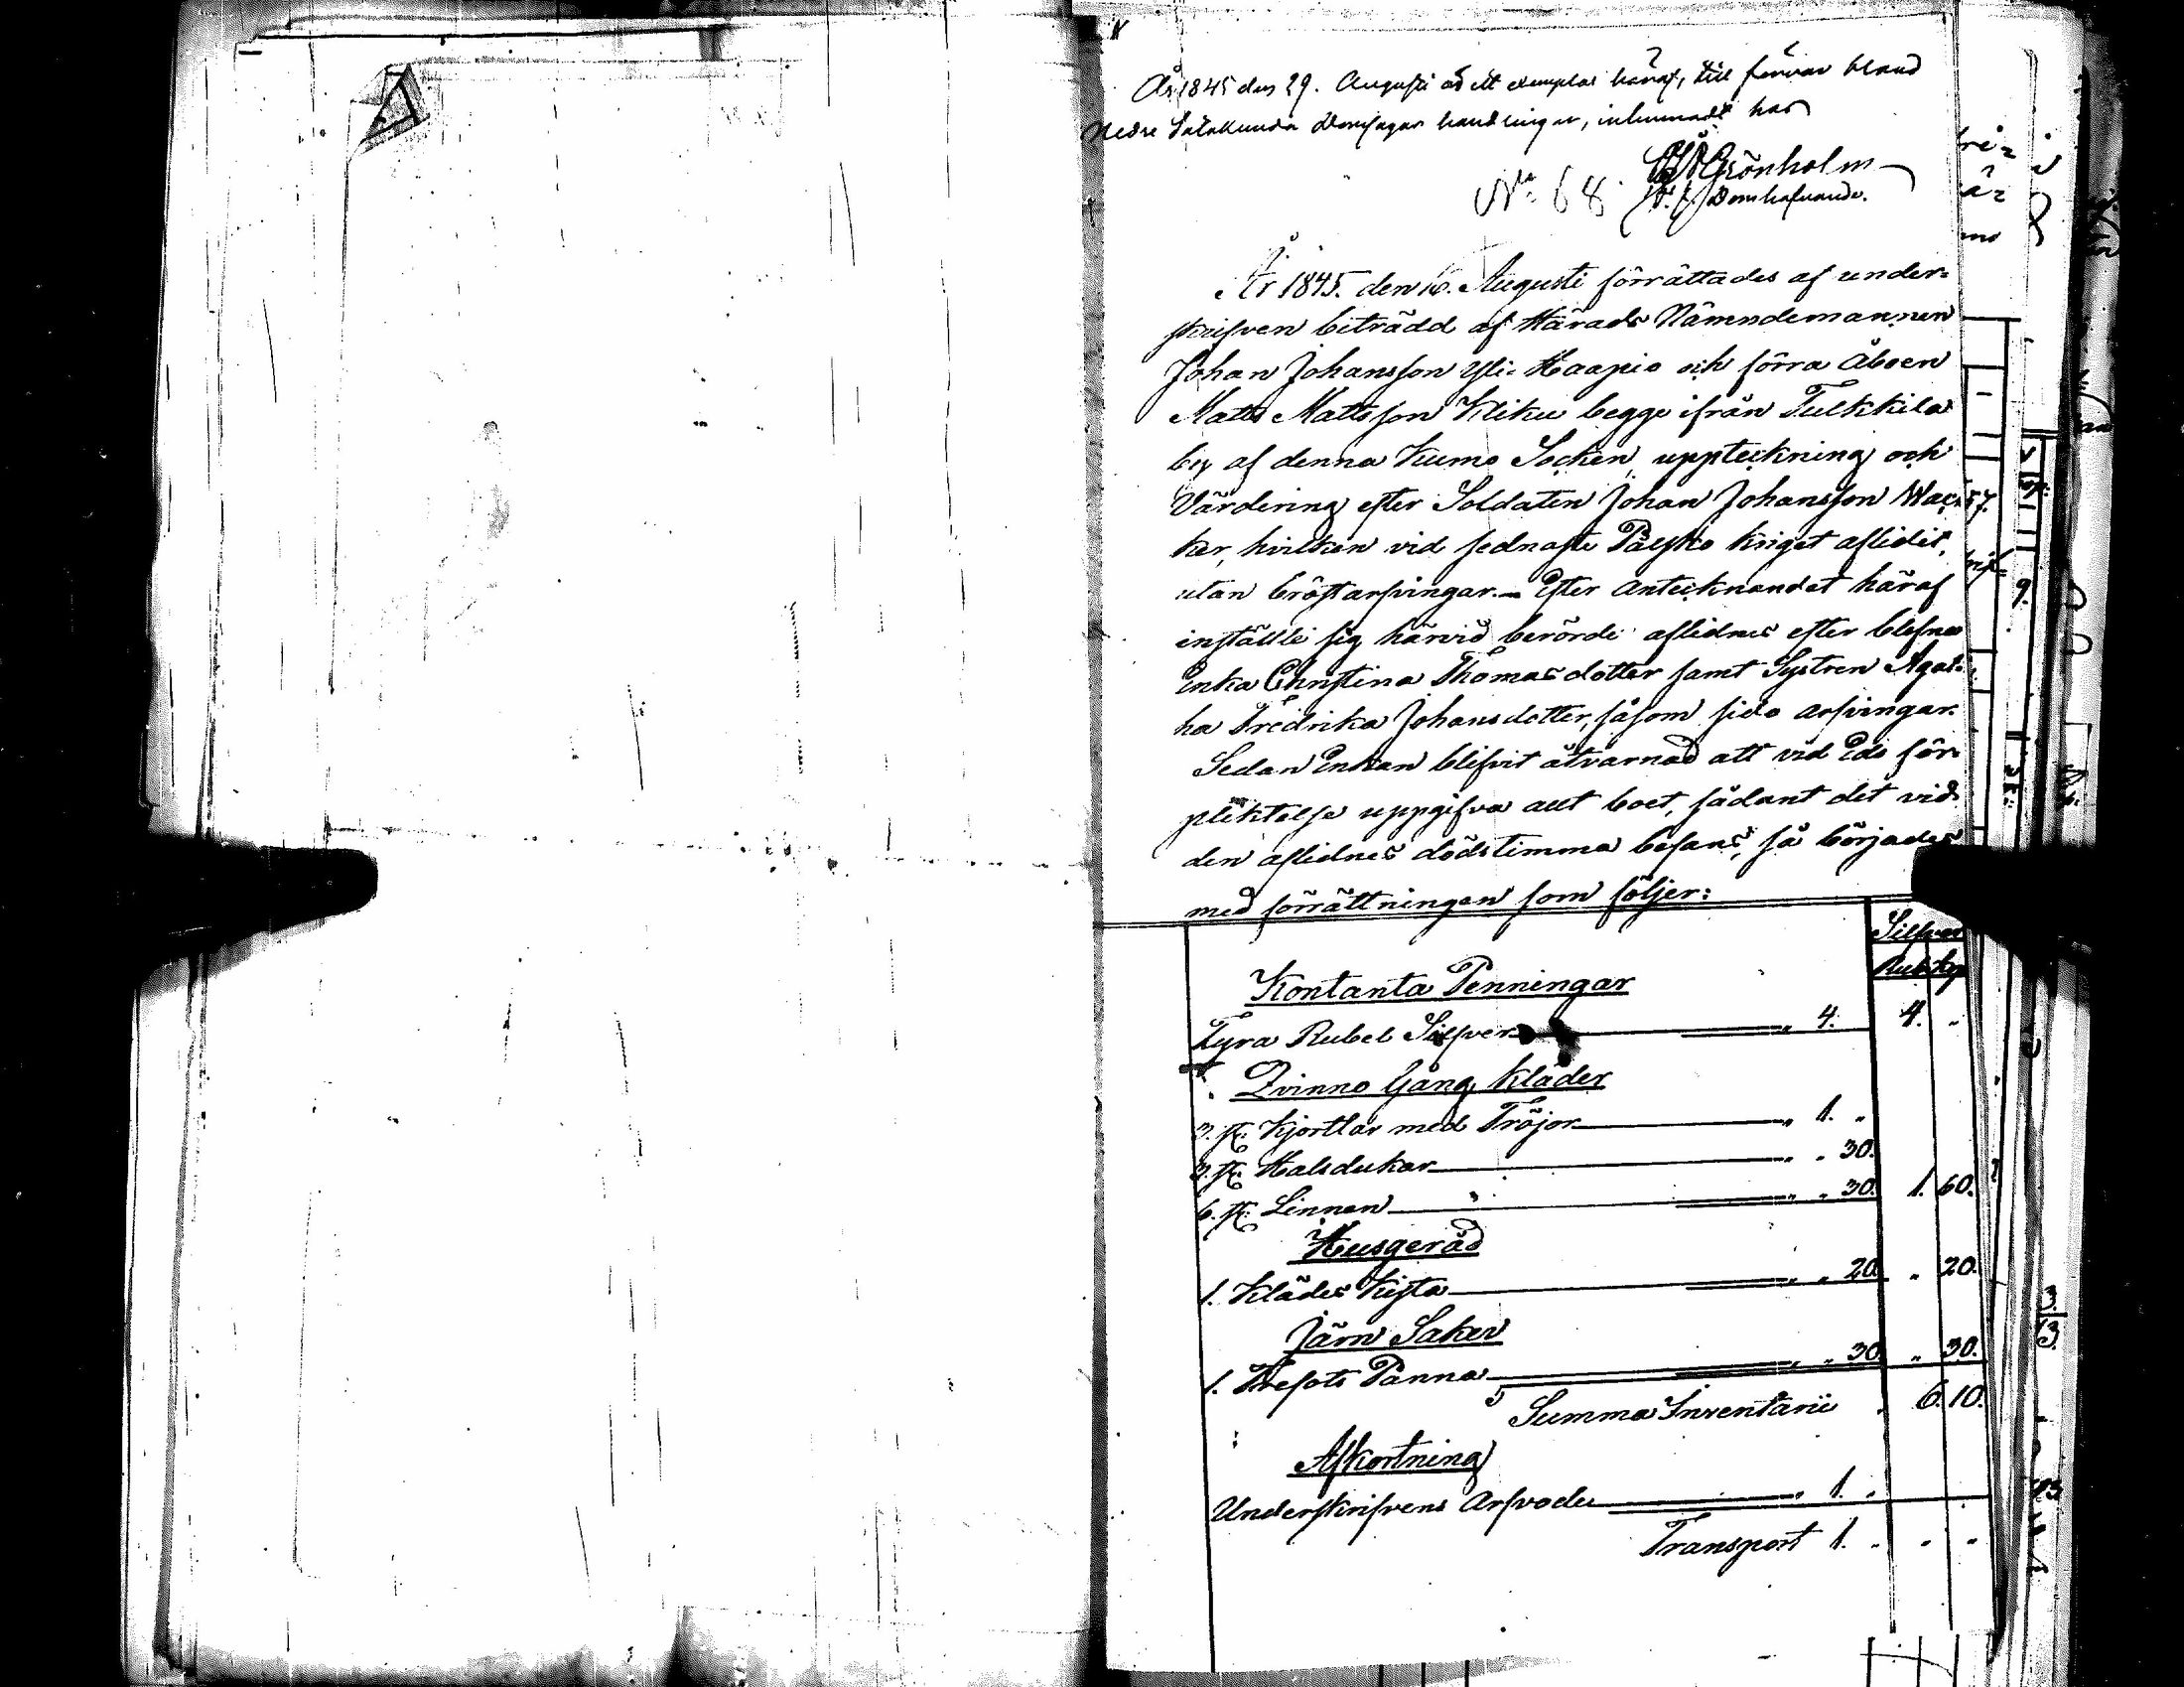 År 1845 den 29. Augusti är ett exemplar häraf, till förvar bland
Nedre Satakunda Domsagas handlingar, inlemnadt har
Grönholm
No 68. v. Domhafvande.
År 1845. den 16. Augusti förrättades af under-
skrifven biträdd af Härads Nämndemannen
Johan Johansson Yli-Haapio och förra Åboen
Matts Mattsson Kliku begge ifrån Tulkkila
by af denna Kumo Socken, uppteckning och
Värdering efter Soldaten Johan Johansson Wac-
ker, hvilken vid sednaste Pålsko kriget aflidit,
utan bröstarfvingar.— Efter antecknandet häraf
inställte sig härvid berörde aflidnes efter blefne
Enka Christina Thomasdotter samt Systren Agat-
ha Fredrika Johansdotter, såsom sido arfvingar.
Sedan Enkan blifvit åtvarnad att vid Eds för-
pliktelse uppgifva allt boet, sådant det vid
den aflidnes dödstimma befans, så börjades
med förrättningen som följer:
Silfver
Rub. Kop
Kontanta Penningar
Fyra Rubel Silfver " 4. 4. "
Qvinno Gång Kläder
3. st: Kjortlar med Tröjor " 1. "
3. st: Halsdukar " " 30.
6. st: Linnen " " 30. 1. 60.
Husgeråd
1. Klädes Kista " " 20. " 20.
Järn Saker
1. Trefots Panna " " 30. " 30.
Summa Inventarii 6. 10.
Afkortning
Underskrifvens Arfvode " 1. "
Transport 1. " " "